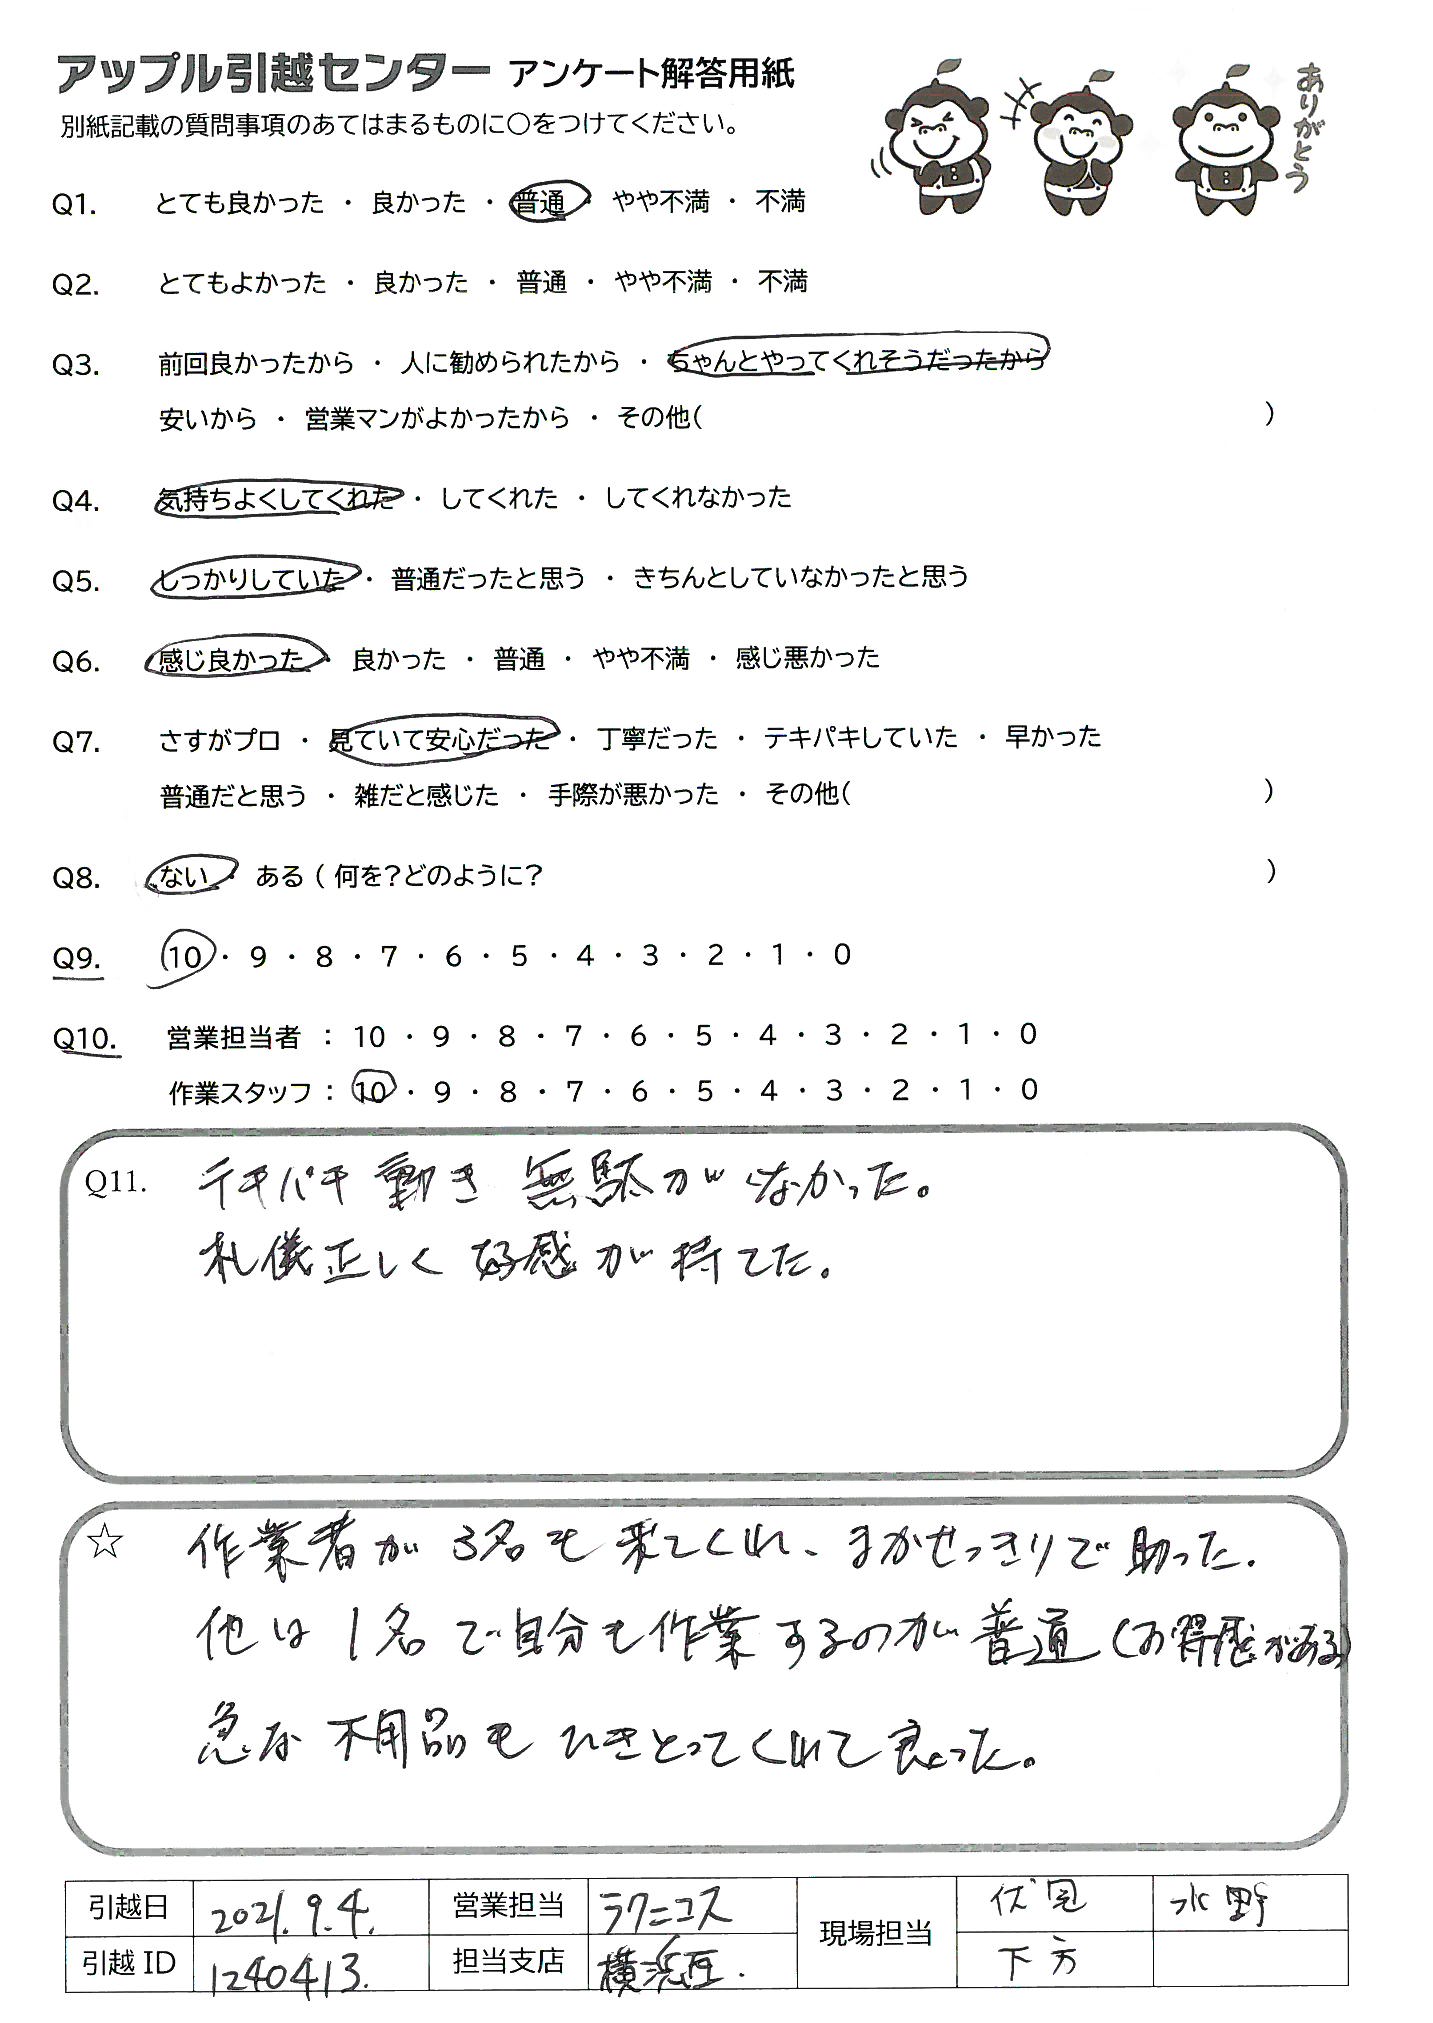 アップル引越センター アンケート解答用紙
別紙記載の質問事項のあてはまるものに○をつけてください。
ありがとう
Q1. とても良かった ・ 良かった ・ 普通 ・ やや不満 ・ 不満
Q2. とてもよかった ・ 良かった ・ 普通 ・ やや不満 ・ 不満
Q3. 前回良かったから ・ 人に勧められたから ・ ちゃんとやってくれそうだったから
安いから ・ 営業マンがよかったから ・ その他( )
Q4. 気持ちよくしてくれた ・ してくれた ・ してくれなかった
Q5. しっかりしていた ・ 普通だったと思う ・ きちんとしていなかったと思う
Q6. 感じ良かった ・ 良かった ・ 普通 ・ やや不満 ・ 感じ悪かった
Q7. さすがプロ ・ 見ていて安心だった ・ 丁寧だった ・ テキパキしていた ・ 早かった
普通だと思う ・ 雑だと感じた ・ 手際が悪かった ・ その他( )
Q8. ない ・ ある ( 何を?どのように? )
Q9. 10 ・ 9 ・ 8 ・ 7 ・ 6 ・ 5 ・ 4 ・ 3 ・ 2 ・ 1 ・ 0
Q10. 営業担当者 : 10 ・ 9 ・ 8 ・ 7 ・ 6 ・ 5 ・ 4 ・ 3 ・ 2 ・ 1 ・ 0
作業スタッフ : 10 ・ 9 ・ 8 ・ 7 ・ 6 ・ 5 ・ 4 ・ 3 ・ 2 ・ 1 ・ 0
Q11. テキパキ動き 無駄がなかった。
礼儀正しく 好感が持てた。
☆ 作業者が3名も来てくれ、まかせっきりで助った.
他は1名で自分も作業するのが普通(お得感がある)
急な不用品もひきとってくれて良かった。
引越日 2021.9.4. 営業担当 ラクニコス 現場担当 伏見 水野
引越ID 1240413. 担当支店 横浜西. 下方